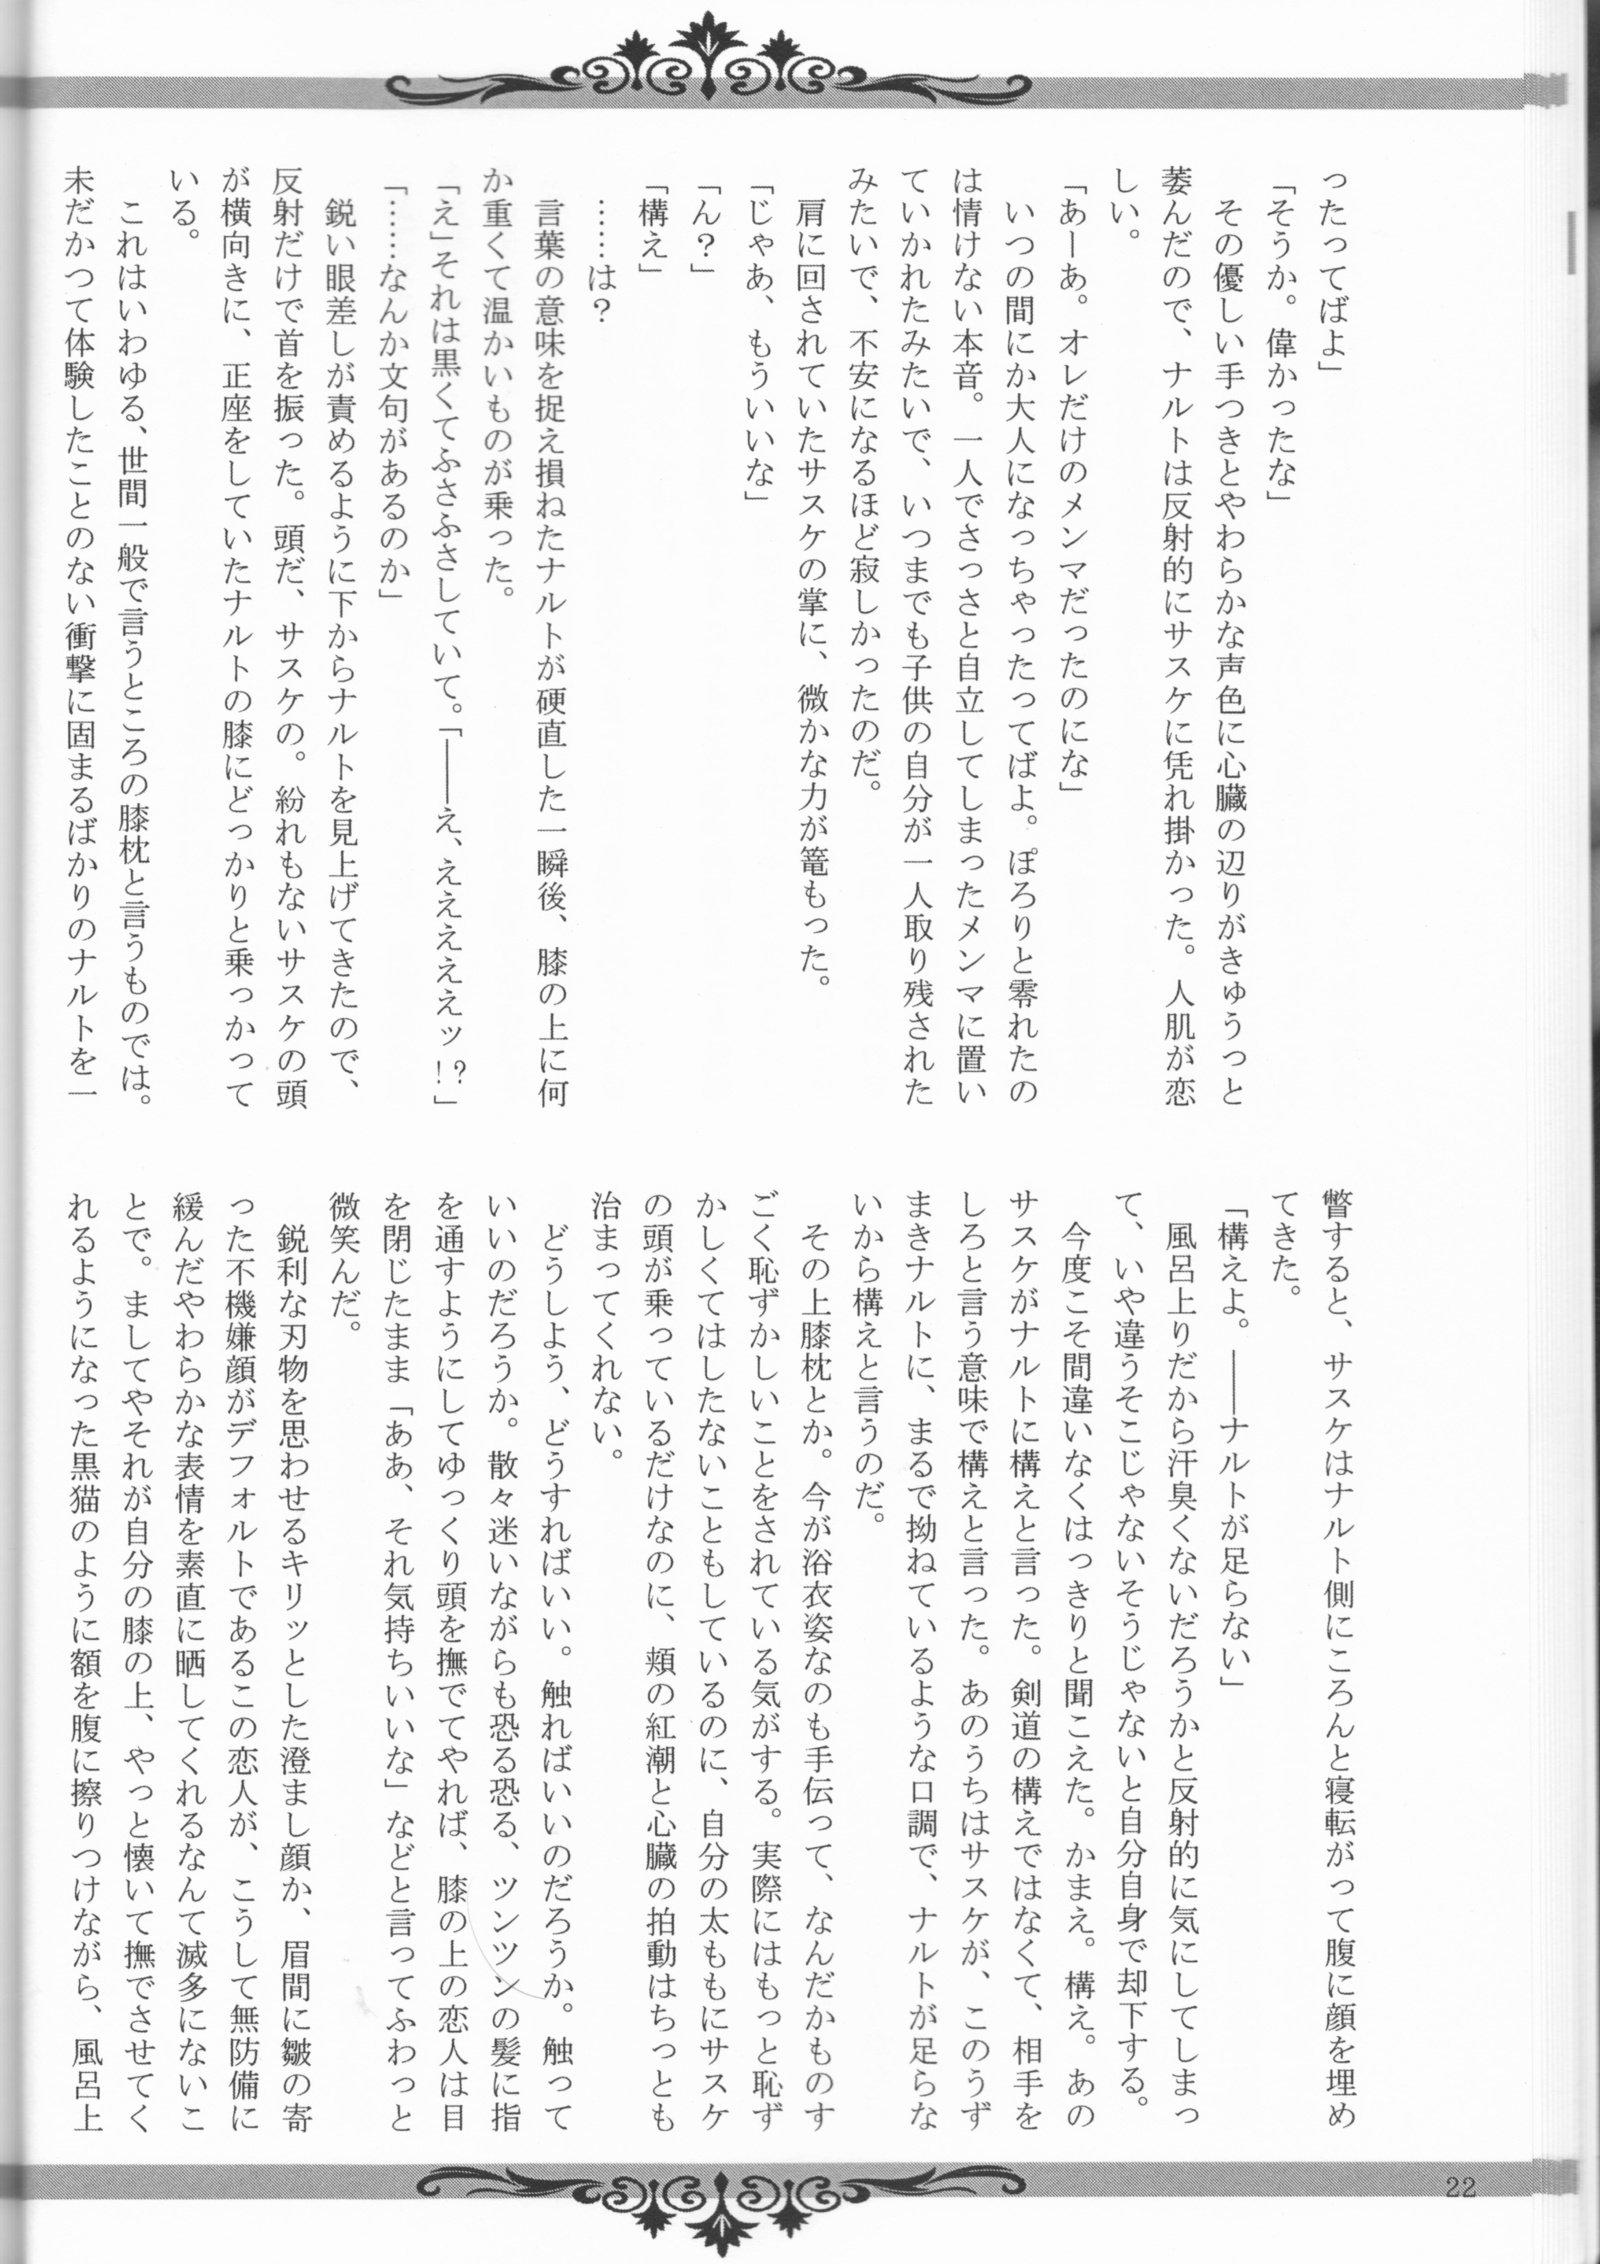 ったってばよ」
「そうか。偉かったな」
　その優しい手つきとやわらかな声色に心臓の辺りがきゅうっと
萎んだので、ナルトは反射的にサスケに凭れ掛かった。人肌が恋
しい。
「あーあ。オレだけのメンマだったのにな」
　いつの間にか大人になっちゃったってばよ。ぽろりと零れたの
は情けない本音。一人でさっさと自立してしまったメンマに置い
ていかれたみたいで、いつまでも子供の自分が一人取り残された
みたいで、不安になるほど寂しかったのだ。
　肩に回されていたサスケの掌に、微かな力が篭もった。
「じゃあ、もういいな」
「ん？」
「構え」
　……は？
　言葉の意味を捉え損ねたナルトが硬直した一瞬後、膝の上に何
か重くて温かいものが乗った。
「え」それは黒くてふさふさしていて。「――え、ええええッ！？」
「……なんか文句があるのか」
　鋭い眼差しが責めるように下からナルトを見上げてきたので、
反射だけで首を振った。頭だ、サスケの。紛れもないサスケの頭
が横向きに、正座をしていたナルトの膝にどっかりと乗っかって
いる。
　これはいわゆる、世間一般で言うところの膝枕と言うものでは。
未だかつて体験したことのない衝撃に固まるばかりのナルトを一
瞥すると、サスケはナルト側にころんと寝転がって腹に顔を埋め
てきた。
「構えよ。――ナルトが足らない」
　風呂上りだから汗臭くないだろうかと反射的に気にしてしまっ
て、いや違うそこじゃないそうじゃないと自分自身で却下する。
　今度こそ間違いなくはっきりと聞こえた。かまえ。構え。あの
サスケがナルトに構えと言った。剣道の構えではなくて、相手を
しろと言う意味で構えと言った。あのうちはサスケが、このうず
まきナルトに、まるで拗ねているような口調で、ナルトが足らな
いから構えと言うのだ。
　その上膝枕とか。今が浴衣姿なのも手伝って、なんだかものす
ごく恥ずかしいことをされている気がする。実際にはもっと恥ず
かしくてはしたないこともしているのに、自分の太ももにサスケ
の頭が乗っているだけなのに、頬の紅潮と心臓の拍動はちっとも
治まってくれない。
　どうしよう、どうすればいい。触ればいいのだろうか。触って
いいのだろうか。散々迷いながらも恐る恐る、ツンツンの髪に指
を通すようにしてゆっくり頭を撫でてやれば、膝の上の恋人は目
を閉じたまま「ああ、それ気持ちいいな」などと言ってふわっと
微笑んだ。
　鋭利な刃物を思わせるキリッとした澄まし顔か、眉間に皺の寄
った不機嫌顔がデフォルトであるこの恋人が、こうして無防備に
緩んだやわらかな表情を素直に晒してくれるなんて滅多にないこ
とで。ましてやそれが自分の膝の上、やっと懐いて撫でさせてく
れるようになった黒猫のように額を腹に擦りつけながら、風呂上
22